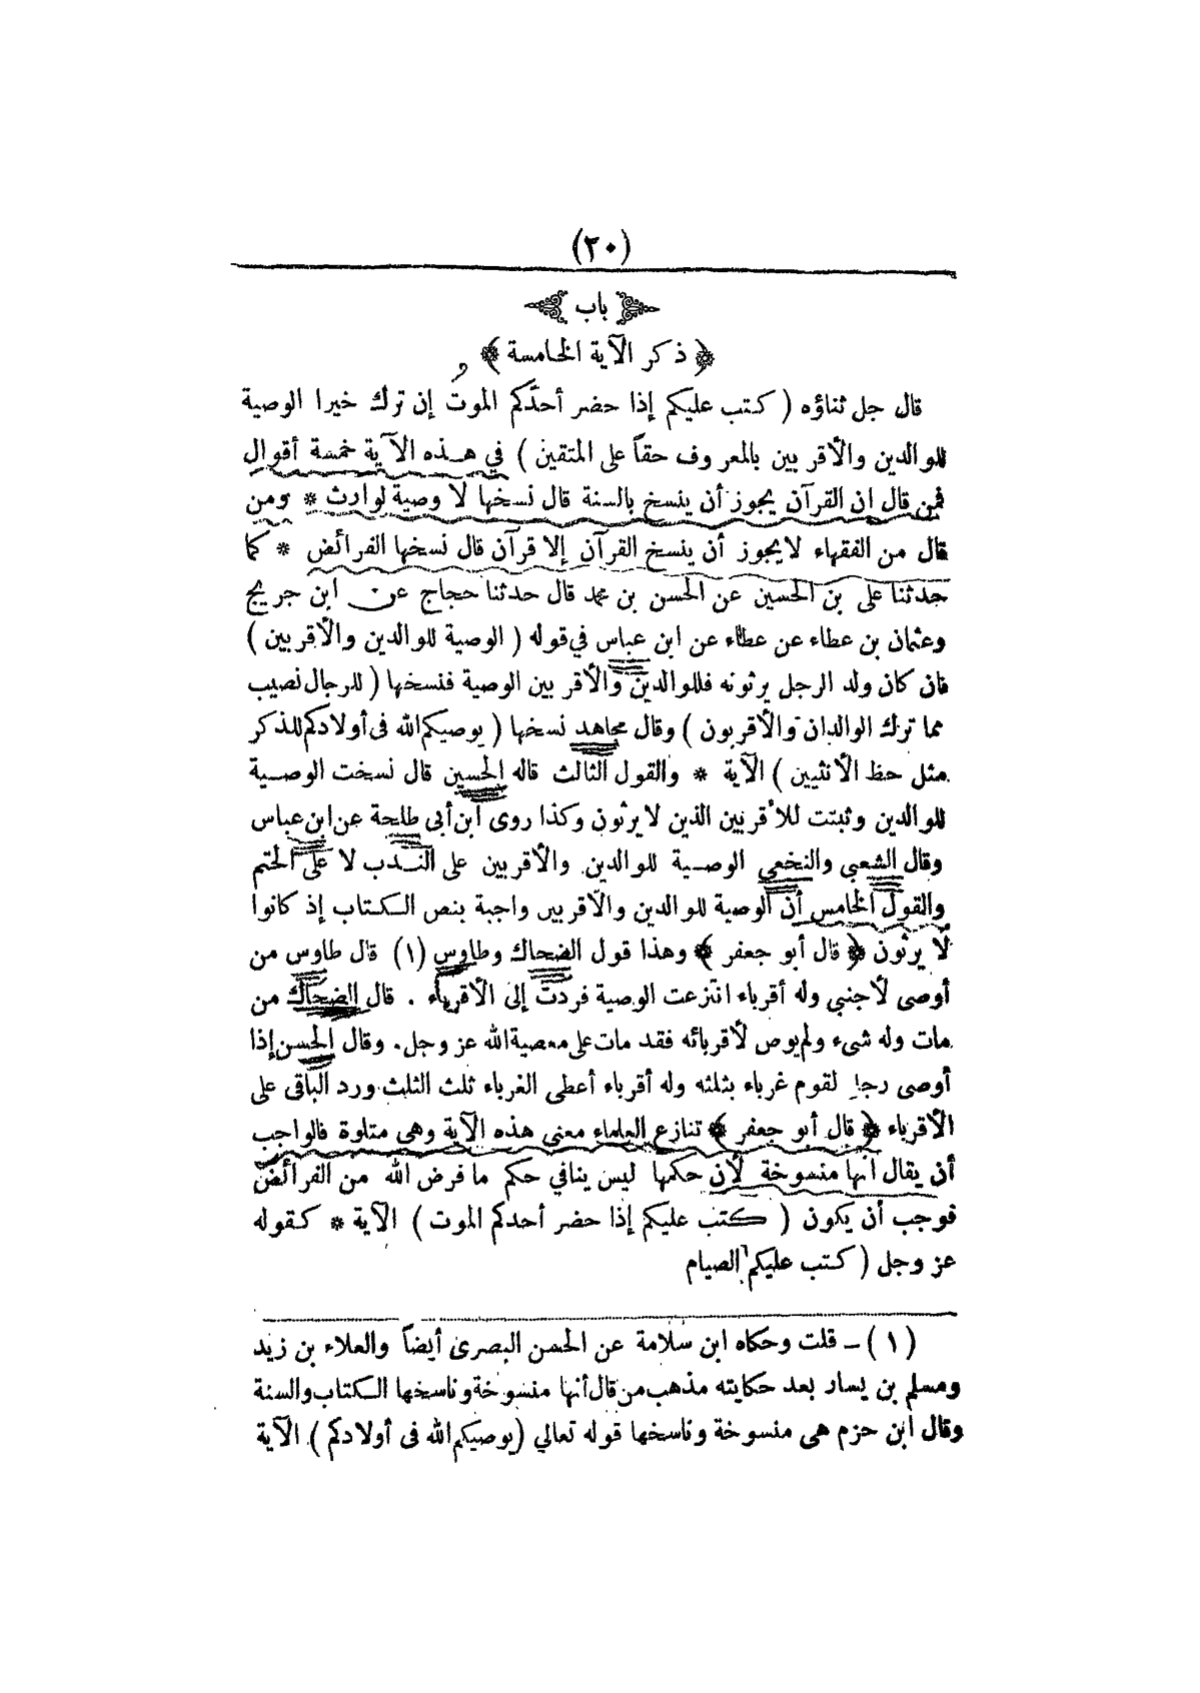 (٢٠)
باب
﴿ ذكر الآية الخامسة ﴾
قال جل ثناؤه ( كتب عليكم إذا حضر أحدكم الموت إن ترك خيرا الوصية
للوالدين والأقربين بالمعروف حقاً على المتقين ) في هذه الآية خمسة أقوال
فمن قال ان القرآن يجوز أن ينسخ بالسنة قال نسخها لا وصية لوارث * ومن
قال من الفقهاء لا يجوز أن ينسخ القرآن إلا قرآن قال نسخها الفرائض * كما
حدثنا على بن الحسين عن الحسن بن محمد قال حدثنا حجاج عن ابن جريج
وعثمان بن عطاء عن عطاء عن ابن عباس في قوله ( الوصية للوالدين والأقربين )
فان كان ولد الرجل يرثونه فللوالدين والأقربين الوصية فنسخها ( للرجال نصيب
مما ترك الوالدان والأقربون ) وقال مجاهد نسخها ( يوصيكم الله فى أولادكم للذكر
مثل حظ الأنثيين ) الآية * والقول الثالث قاله الحسين قال نسخت الوصية
للوالدين وثبتت للأقربين الذين لا يرثون وكذا روى ابن أبى طلحة عن ابن عباس
وقال الشعبي والنخعي الوصية للوالدين والأقربين على الندب لا على الحتم
والقول الخامس أن الوصية للوالدين والأقربين واجبة بنص الكتاب إذ كانوا
لا يرثون ﴿ قال أبو جعفر ﴾ وهذا قول الضحاك وطاوس (١) قال طاوس من
أوصى لأجنبي وله أقرباء انتزعت الوصية فردت إلى الأقرباء . قال الضحاك من
مات وله شىء ولم يوص لأقربائه فقد مات على معصية الله عز وجل . وقال الحسن إذا
أوصى رجل لقوم غرباء بثلثه وله أقرباء أعطى الغرباء ثلث الثلث ورد الباقى على
الأقرباء ﴿ قال أبو جعفر ﴾ تنازع العلماء معنى هذه الآية وهى متلوة فالواجب
أن يقال انها منسوخة لأن حكمها ليس ينافي حكم ما فرض الله من الفرائض
فوجب أن يكون ( كتب عليكم إذا حضر أحدكم الموت ) الآية * كقوله
عز وجل ( كتب عليكم الصيام
(١) – قلت وحكاه ابن سلامة عن الحسن البصرى أيضاً والعلاء بن زيد
ومسلم بن يسار بعد حكايته مذهب من قال أنها منسوخة وناسخها الكتاب والسنة
وقال ابن حزم هى منسوخة وناسخها قوله تعالي ( يوصيكم الله فى أولادكم ) الآية